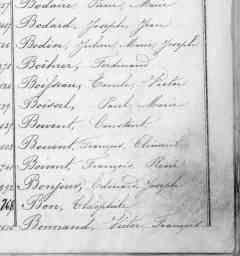 Bodaire, Pierre, Marie
Bodard, Joseph, Jean
Bodin, Julien, Marie, Joseph
Boehrer, Ferdinand
Boissau, Emile, Victor
Boisart, Paul, Marie
Boivent, Constant
Boivent, François, Clément
Boivent, François, René
Bonjour, Edouard, Joseph
768 Bon, Théophile
Bonnand, Victor, François